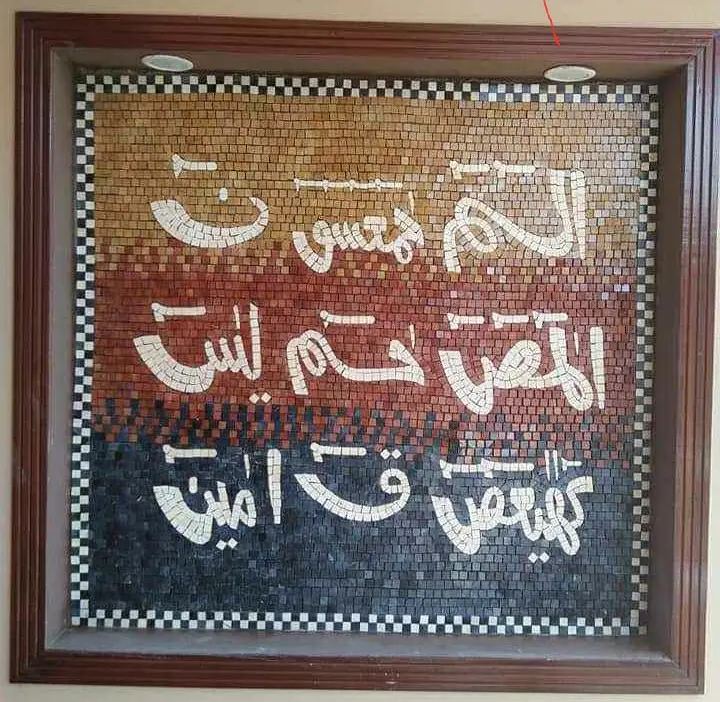 الٓمٓ حٰمٓعٓسٓقٓ نٓ
الٓمٓصٓ حٰمٓ يٰسٓ
كٓهٰيٰعٓصٓ قٓ اٰمينٓ